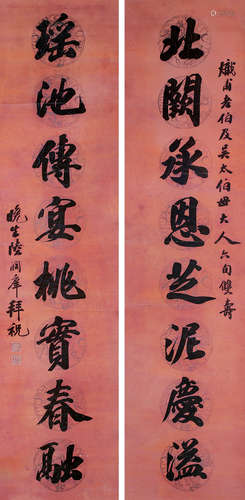 熾甫老伯及吳太伯母大人六旬雙壽
北闕承恩芝泥慶溢
瑤池傳宴桃實春融
晚生陸潤庠拜祝